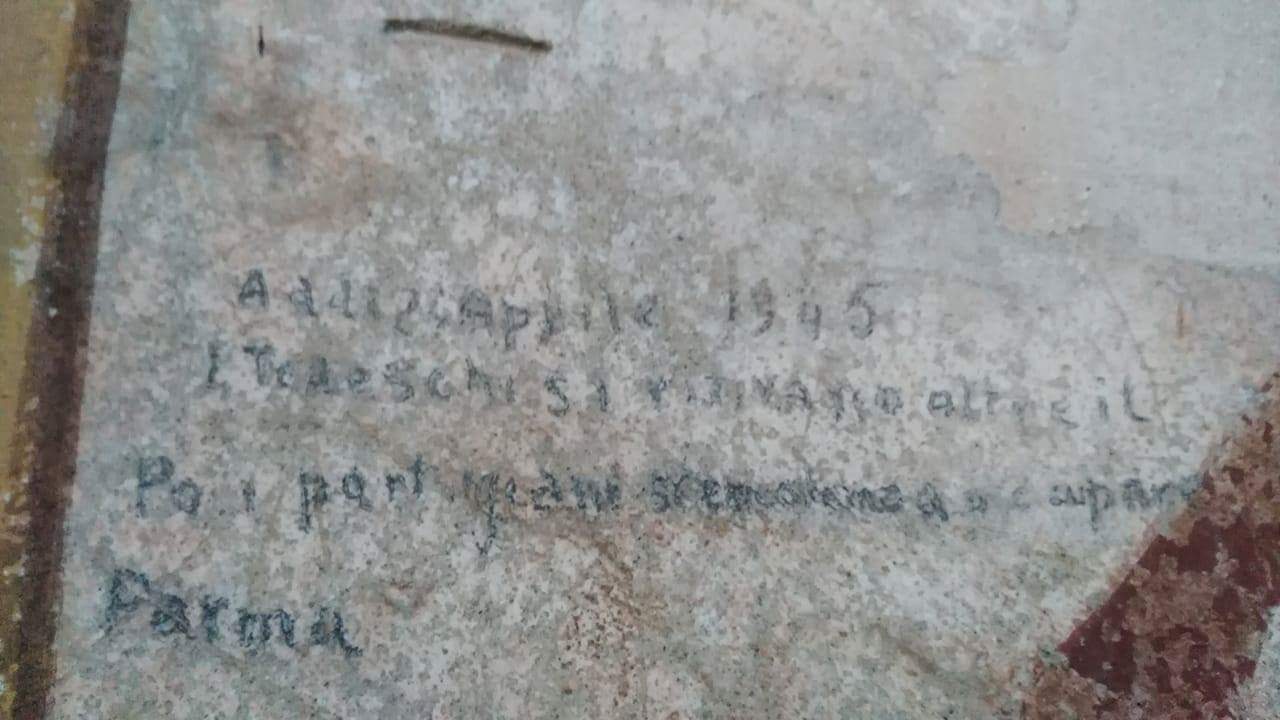 Addi 25 Aprile 1945
I Tedeschi si ritirano oltre il
Po i partigiani scendono a occupare
Parma